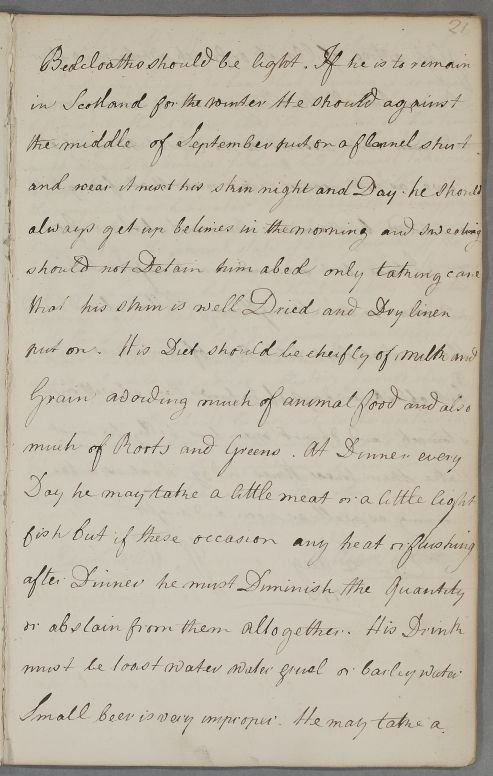 21
Bedcloaths should be light. If he is to remain
in Scotland for the winter He should against
the middle of September put on a flannel shirt
and wear it next his skin night and Day. he should
always get up betimes in the morning and sweating
should not Detain him abed only taking care
that his skin is well Dried and Dry linen
put on. His Diet should be cheifly of milk and
Grain avoiding much of animal food and also
much of Roots and Greens. At Dinner every
Day he may take a little meat or a little light
fish but if these occasion any heat or flushing
after Dinner he must Diminish the Quantity
or abstain from them altogether. His Drink
must be toast water water gruel or barley water
Small beer is very improper. He may take a